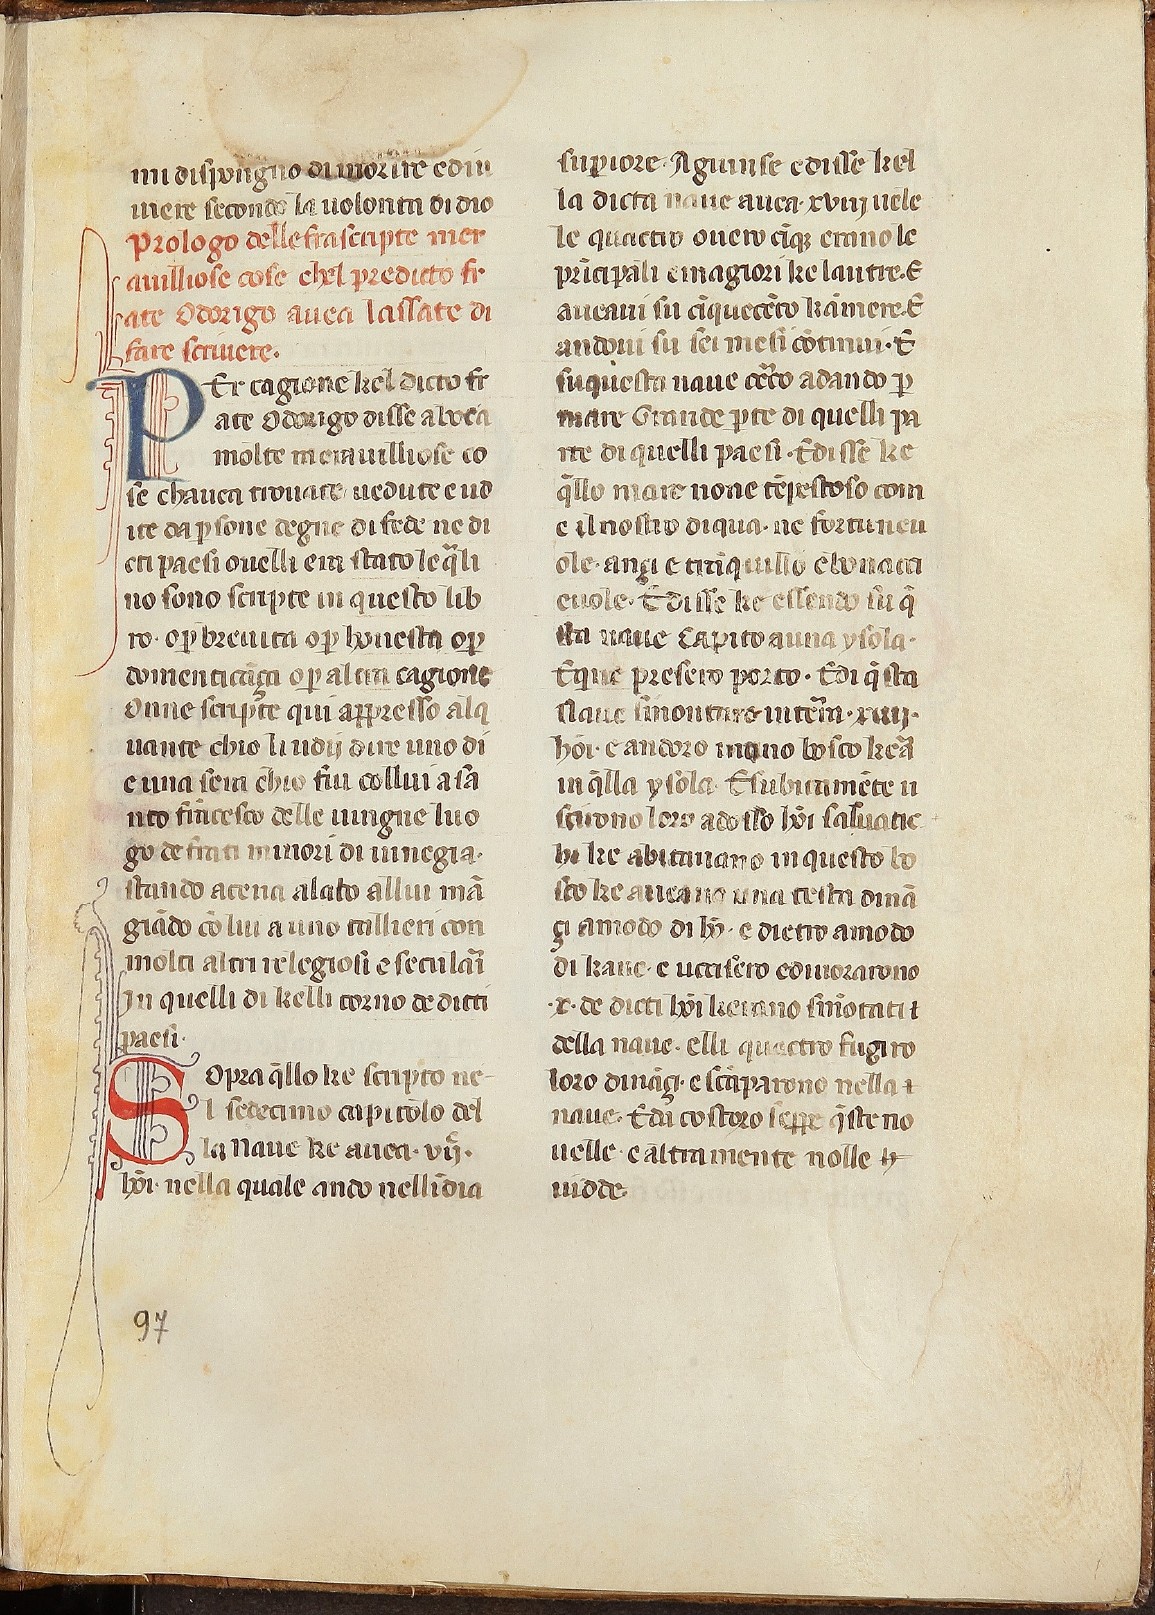 mi dispongno di morire edui
uiere secondo la uolonta di dio
Prologo delle frascripte mer
auilliose cose chel predicto fr
ate Odorigo auea lassate di
fare scriuere.
PEr cagione kel dicto fr
ate Odorigo disse a boca
molte merauilliose co
se chauea trouate uedute e ud
ite da ꝑsone degne di fede ne di
cti paesi ouelli era stato le q̄li
no sono scripte in questo lib
ro. o ꝑ breuita o ꝑ honesta o ꝑ
domenticāça o ꝑ altra cagione
Onne scripte qui appresso alq
uante chio li udij dire uno di
e una sera chio fui collui a sa
nto frācesco delle uingne luo
go de frati minori di uinegia.
stando a cena alato allui mā
giādo cō lui a uno tallieri con
molti altri relegiosi e seculāi
in quelli di kelli torno de dicti
paesi.
SOpra q̄llo ke scripto ne-
l sedecimo capitolo del
la Naue ke auea .vij̄.
hōi. nella quale ando nellīdia
suꝑiore. Agiunse e disse kel
la dicta naue auea .xviij uele
le quactro ouero cīqȝ erano le
prīcipali e magiori ke laltre. E
aueaui su cīquecēto kāmere. E
andoui su sei mesi cōtinui. E
su questa naue cēto adando ꝑ
mare Grande ꝑte di quelli pa
rte di quelli paesi. E disse ke
q̄llo mare none tēpestoso com
e il nostro di qua. ne fortuneu
ole. ançi e trāquillo e bonacci
euole. E disse ke essendo su q̄
sta naue Capito a una ysola.
E que presero porto. E di q̄sta
Naue smontaro in terra .xiiij.
hōi. e andoro in uno bosco ke ā
in q̄lla ysola. E subitamēte u
scirono loro adosso hōi saluatic
hi ke abitauano in questo bo
sco ke aueano una testa dinā
çi a modo di hō. e dietro a modo
di kane. e uccisero e diuorarono
.x. de dicti hōi kerano smōtati
della naue. elli quactro fugiro
loro dināçi. e scāparono nella
naue. E da costoro seppe q̄ste no
uelle. e altramente nolle
uidde.
97